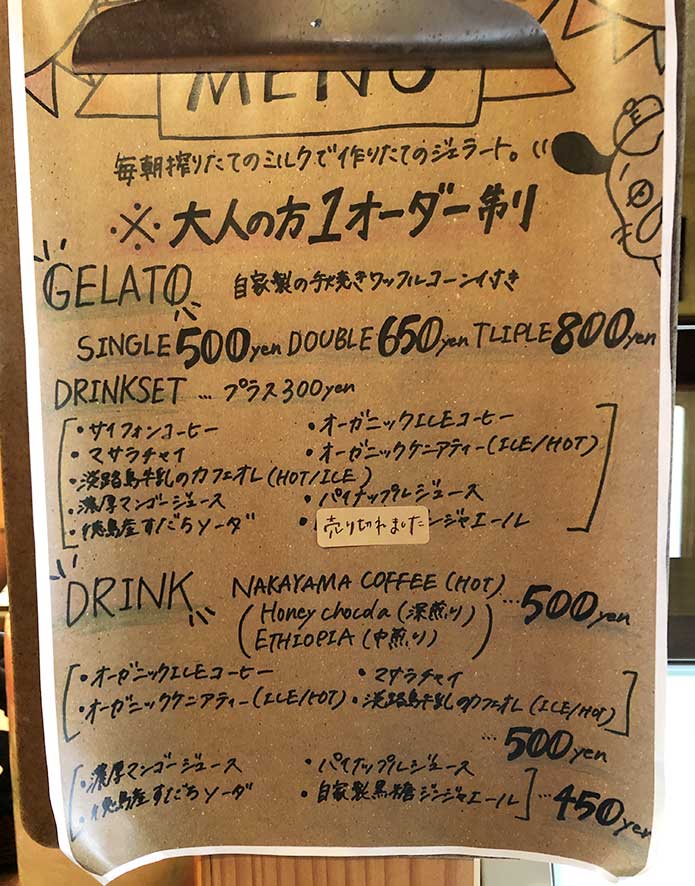 MENU
毎朝搾りたてのミルクで作りたてのジェラート。
※大人の方1オーダー制り
GELATO 自家製の手焼きワッフルコーン付き
SINGLE 500yen DOUBLE 650yen TLIPLE 800yen
DRINKSET … プラス300yen
・サイフォンコーヒー ・オーガニックICEコーヒー
・マサラチャイ ・オーガニックケニアティー(ICE/HOT)
・淡路島牛乳のカフェオレ(HOT/ICE)
・濃厚マンゴージュース ・パイナップルジュース
・徳島産すだちソーダ ・ 売り切れました ンジャエール
DRINK NAKAYAMA COFFEE (HOT) …500yen
(Honey chocola (深煎り)
ETHIOPIA (中煎り))
・オーガニックICEコーヒー ・マサラチャイ
・オーガニックケニアティー(ICE/HOT) ・淡路島牛乳のカフェオレ(ICE/HOT)
…500yen
・濃厚マンゴージュース ・パイナップルジュース
・徳島産すだちソーダ ・自家製黒糖ジンジャエール …450yen